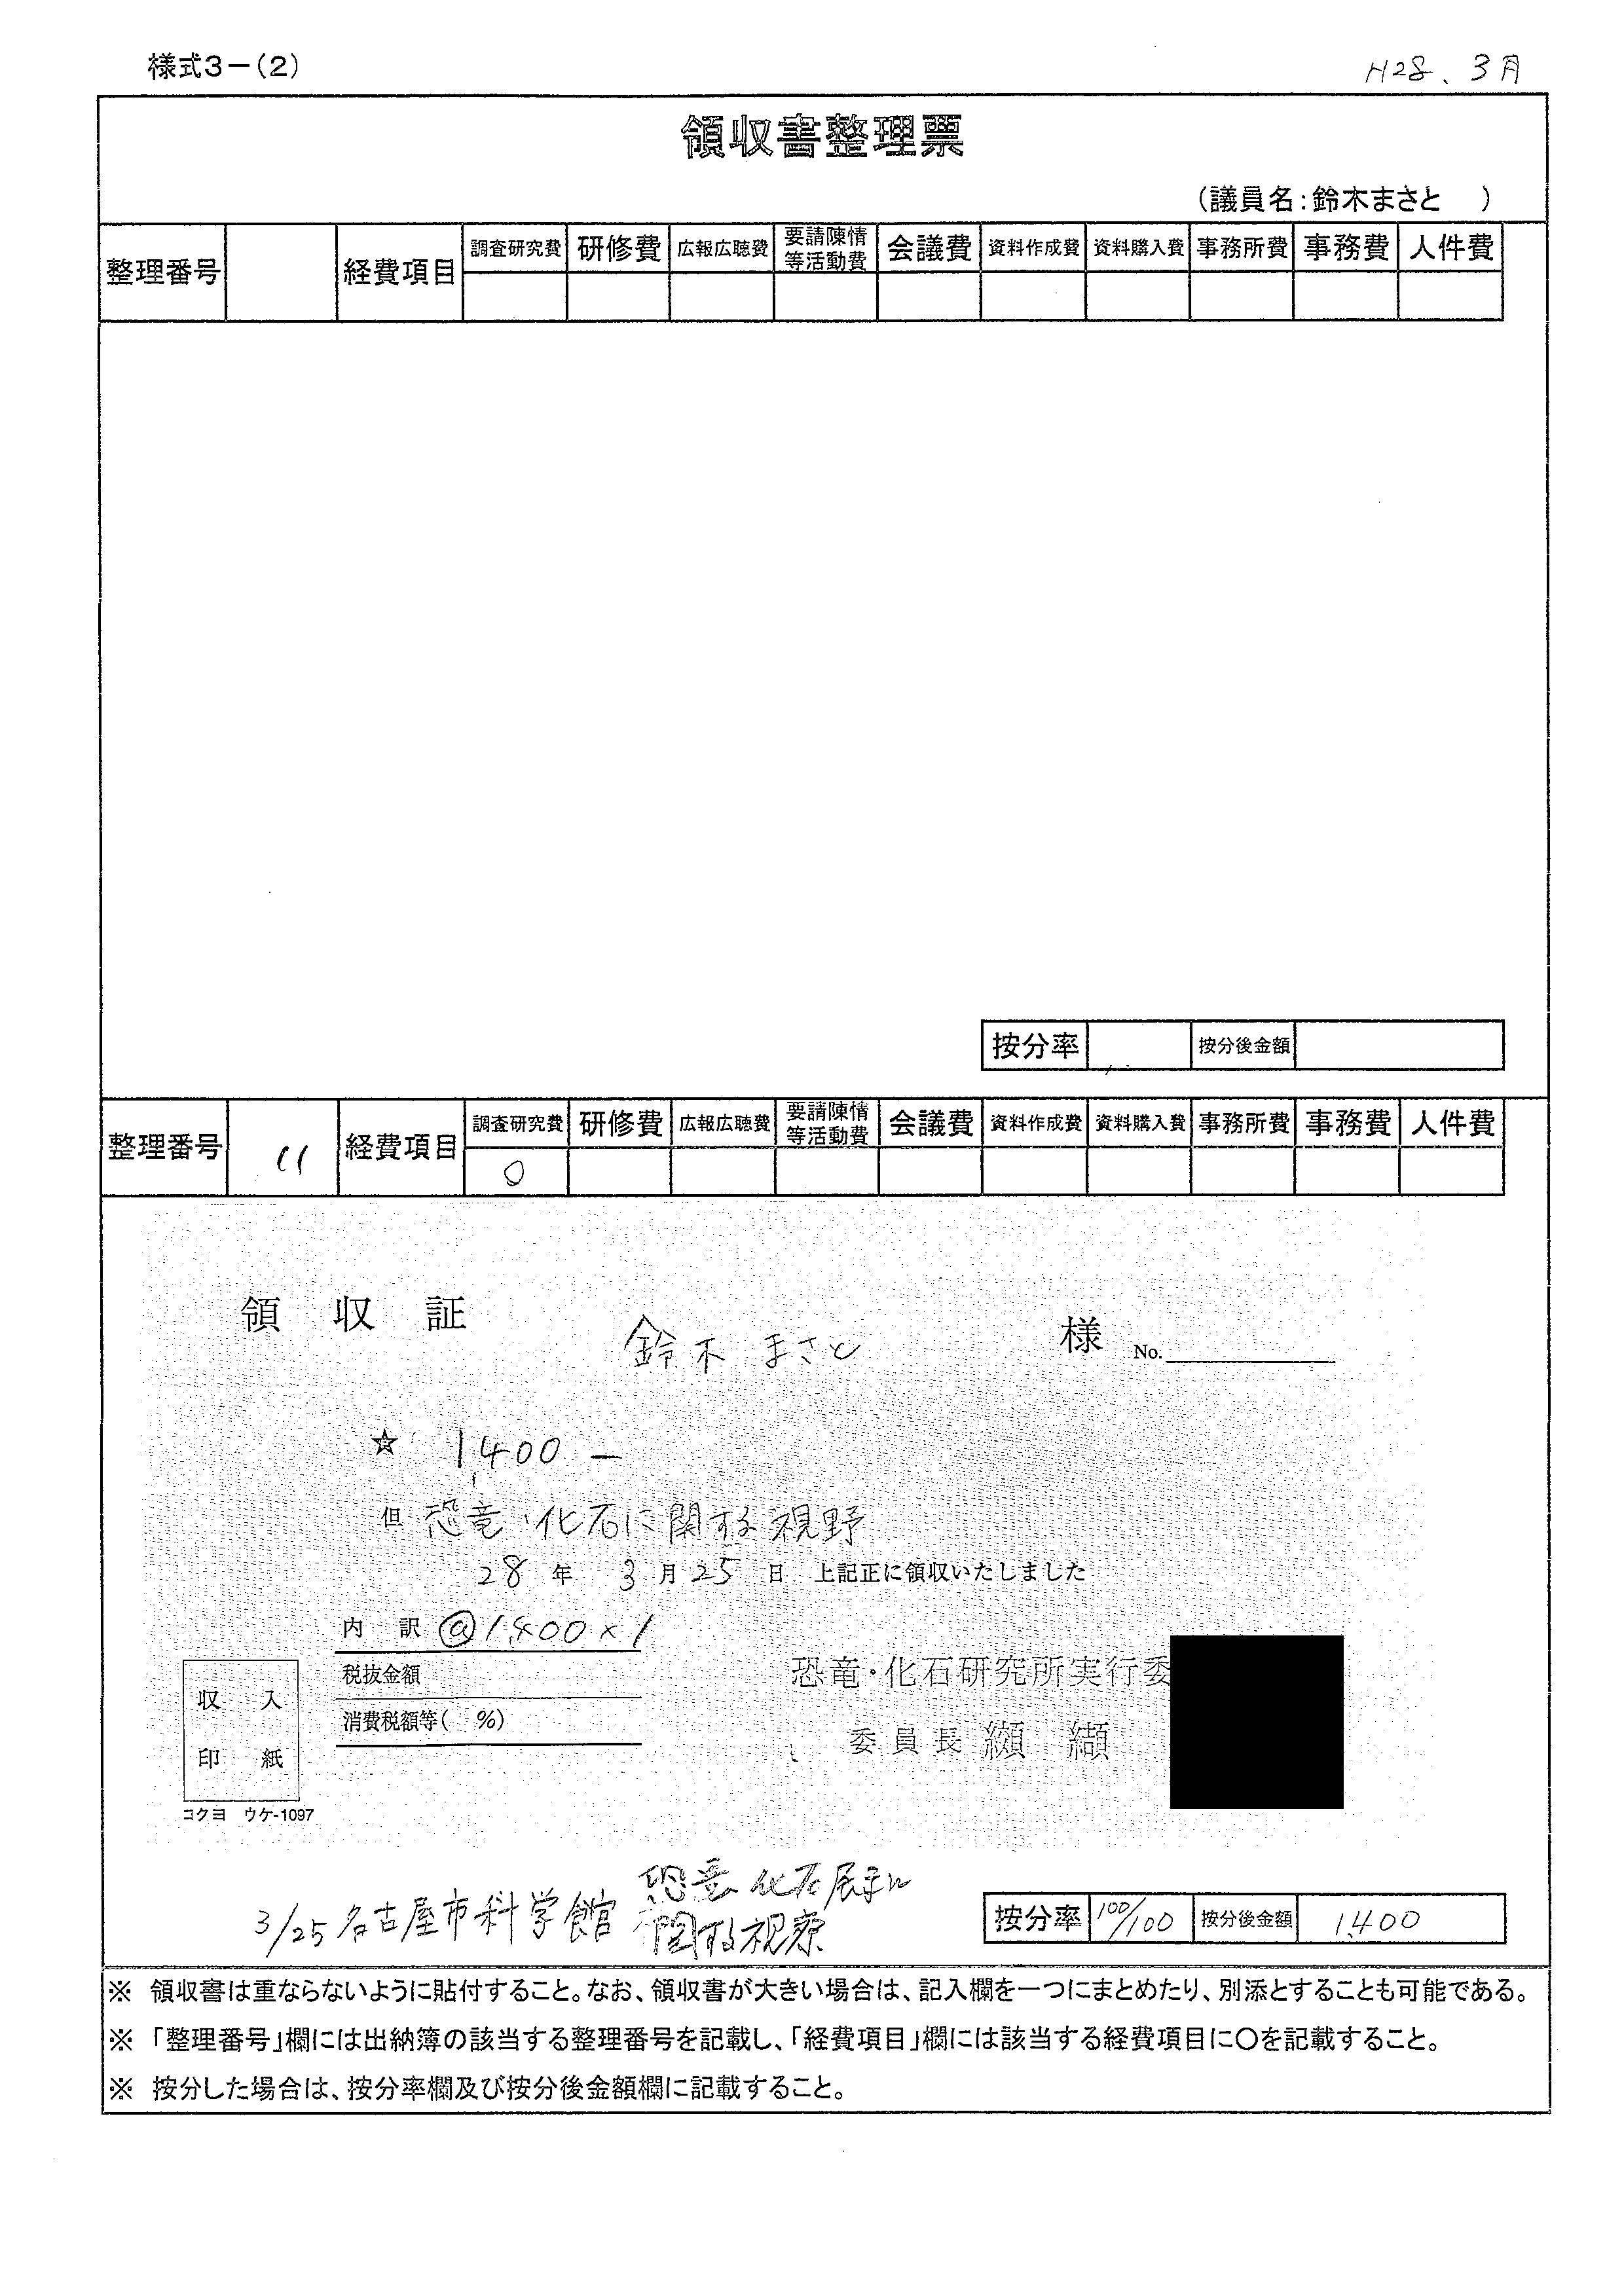 様式3－(2)
H28. 3月
領収書整理票
(議員名:鈴木まさと )
整理番号 経費項目 調査研究費 研修費 広報広聴費 要請陳情等活動費 会議費 資料作成費 資料購入費 事務所費 事務費 人件費
按分率 按分後金額
整理番号 11 経費項目 調査研究費 研修費 広報広聴費 要請陳情等活動費 会議費 資料作成費 資料購入費 事務所費 事務費 人件費
○
領 収 証
鈴木 まさと 様 No.
☆ 1,400 －
但 恐竜・化石に関する視野
28 年 3 月 25 日 上記正に領収いたしました
内 訳 @1,400×1
税抜金額
消費税額等( %)
収 入
印 紙
恐竜・化石研究所実行委
委員長
コクヨ ウケ-1097
3/25 名古屋市科学館 恐竜化石展に
関する視察
按分率 100/100 按分後金額 1,400
※ 領収書は重ならないように貼付すること。なお、領収書が大きい場合は、記入欄を一つにまとめたり、別添とすることも可能である。
※ 「整理番号」欄には出納簿の該当する整理番号を記載し、「経費項目」欄には該当する経費項目に○を記載すること。
※ 按分した場合は、按分率欄及び按分後金額欄に記載すること。